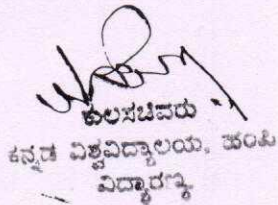 ಕುಲಸಚಿವರು
ಕನ್ನಡ ವಿಶ್ವವಿದ್ಯಾಲಯ, ಹಂಪಿ
ವಿದ್ಯಾರಣ್ಯ